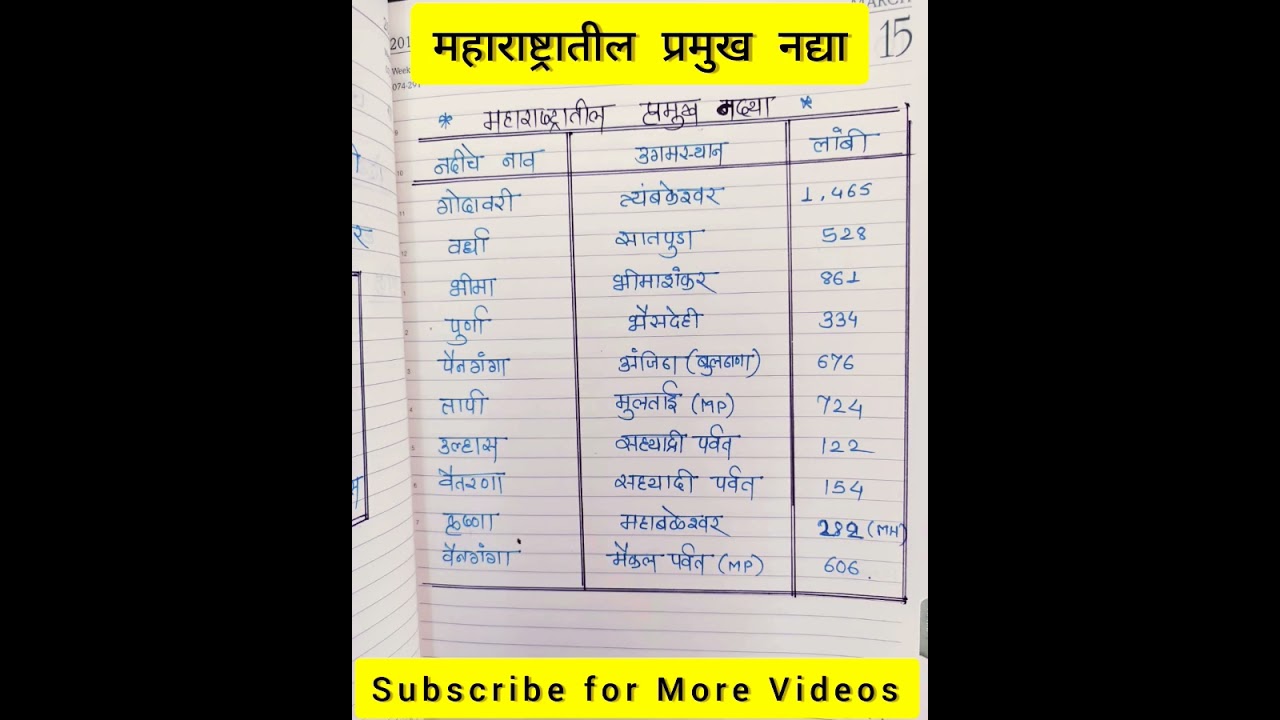 महाराष्ट्रातील प्रमुख नद्या
15
201
Week
* महाराष्ट्रातील प्रमुख नद्या *
नदीचे नाव उगमस्थान लांबी
गोदावरी त्यंबकेश्वर 1,465
वर्धा सातपुडा 528
भीमा भीमाशंकर 861
पुर्णा भैसदेही 334
पैनगंगा अंजिठा (बुलढाणा) 676
तापी मुलताई (MP) 724
उल्हास सह्याद्री पर्वत 122
वैतरणा सह्यादी पर्वत 154
कृष्णा महाबळेश्वर 282 (MH)
वैनगंगा मैकल पर्वत (MP) 606.
Subscribe for More Videos